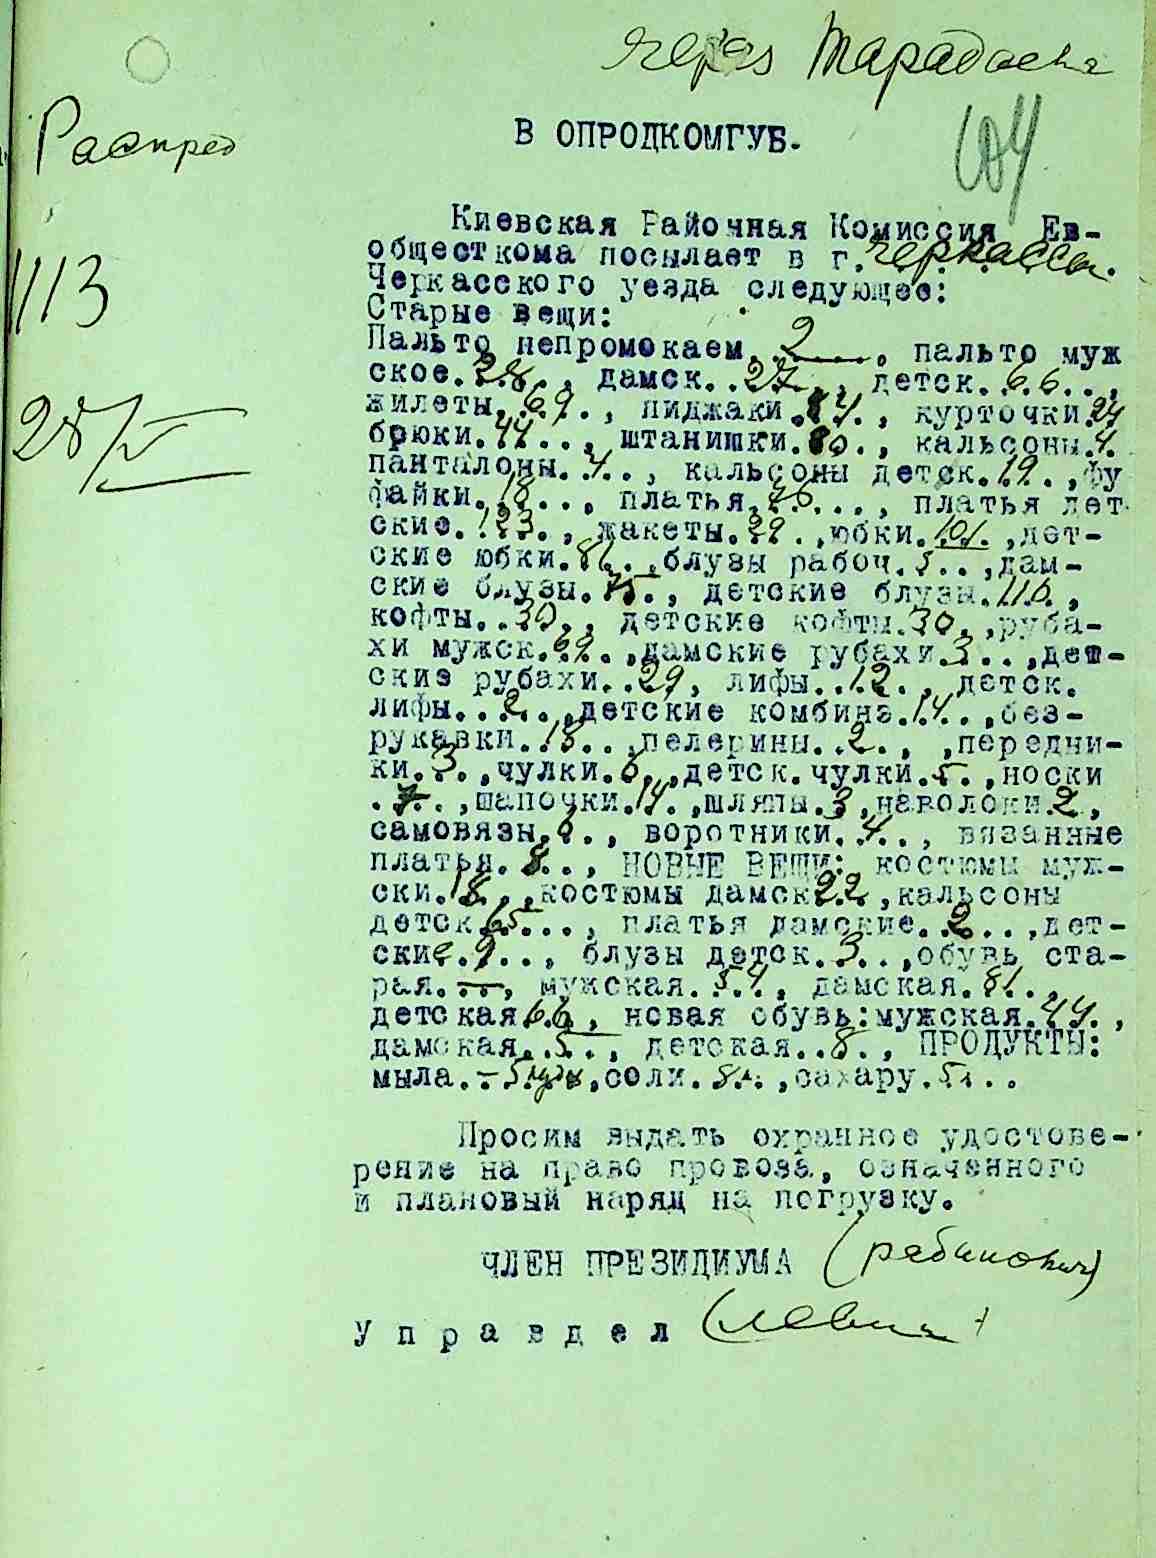 через
Распред
В ОПРОДКОМГУБ.
1113
28/V
Киевская Районная Комиссия Ев-
общесткома посылает в г. Черкассы.
Черкасского уезда следующее:
Старые вещи:
Пальто непромокаем. 2 . , пальто муж
ское. 28. . , дамск. . 27. . , детск. .66. . ,
жилеты. .69. . , пиджаки. 84. . , курточки 24
брюки. 44. . . , штанишки. 80. . , кальсоны. 4.
панталоны. .4. . , кальсоны детск. .19. . ,фу
файки. .18. . . , платья. 76. . . . , платья дет
ские. .123. . , жакеты. 29. . ,юбки. 101. ,дет-
ские юбки. 81. . ,блузы рабоч. 5. . ,дам-
ские блузы. 75. . , детские блузы. 116. ,
кофты. . 30. . , детские кофты. 30. . ,руба-
хи мужск. 69. . ,дамские рубахи. 3. . . ,дет-
ские рубахи. . 29, лифы. .12. . , детск.
лифы. . .2. . . ,детские комбинэ. 14. . ,без-
рукавки. .18. . ,пелерины. . 2. . , ,передни-
ки. .3. . ,чулки. 6. . ,детск. чулки. 5. . ,носки
. .7. . ,шапочки. 14. . ,шляпы. 3 ,наволоки. 2. ,
самовязы. 9. . , воротники. .4. . . , вязанные
платья. . 8. . . , НОВЫЕ ВЕЩИ: костюмы муж-
ски. 18. . ,костюмы дамск 22. . ,кальсоны
детск. 65. . . . , платья дамские. . 2. . . ,дет-
ские. 9. . . , блузы детск. .3. . . ,обувь ста-
рая. — , мужская. .54. , дамская. 81. . ,
детская. 66. , новая обувь:мужская. 44. . ,
дамская. . 5. . , детская. . 8. . , ПРОДУКТЫ:
мыла. – 5 пуд. ,соли. 8п. . ,сахару. 5п. . .
Просим выдать охранное удостове-
рение на право провоза, означенного
и плановый наряд на погрузку.
ЧЛЕН ПРЕЗИДИУМА (рабинович)
У п р а в д е л (левин